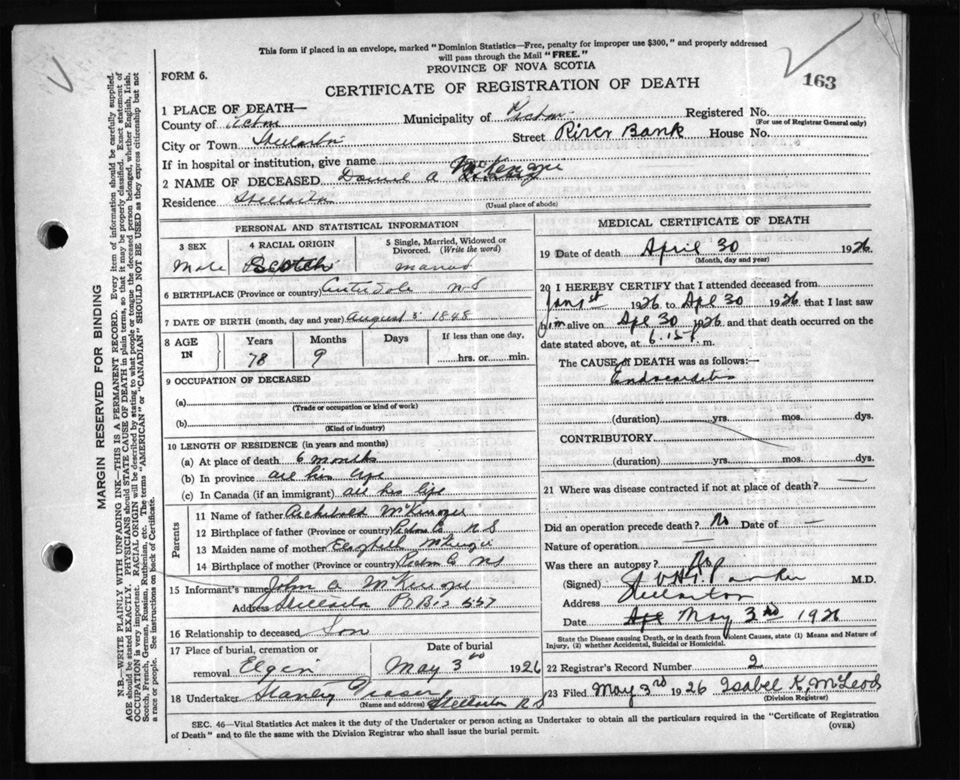 This form if placed in an envelope, marked "Dominion Statistics—Free, penalty for improper use $300," and properly addressed
will pass through the Mail "FREE."
FORM 6.
PROVINCE OF NOVA SCOTIA
CERTIFICATE OF REGISTRATION OF DEATH
163
1 PLACE OF DEATH—
County of Municipality of Registered No.
(For use of Registrar General only)
City or Town Stellarton Street River Bank House No.
If in hospital or institution, give name
2 NAME OF DECEASED A McKenzie
Residence Stellarton
(Usual place of abode)
PERSONAL AND STATISTICAL INFORMATION
3 SEX 4 RACIAL ORIGIN 5 Single, Married, Widowed or Divorced. (Write the word)
Male Scotch
6 BIRTHPLACE (Province or country) N S
7 DATE OF BIRTH (month, day and year) August 3 1848
8 AGE IN Years Months Days If less than one day,
78 9 hrs. or min.
9 OCCUPATION OF DECEASED
(a)
(Trade or occupation or kind of work)
(b)
(Kind of industry)
10 LENGTH OF RESIDENCE (in years and months)
(a) At place of death 6 months
(b) In province all his life
(c) In Canada (if an immigrant) all his life
Parents
11 Name of father Archibald McKenzie
12 Birthplace of father (Province or country) N S
13 Maiden name of mother McKenzie
14 Birthplace of mother (Province or country) NS
15 Informant's name John A McKenzie
Address Stellarton P O Box 557
16 Relationship to deceased Son
17 Place of burial, cremation or removal Elgin Date of burial May 3rd 1926
18 Undertaker Stanley Fraser Stellarton N.S
(Name and address)
MEDICAL CERTIFICATE OF DEATH
19 Date of death April 30 1926
(Month, day and year)
20 I HEREBY CERTIFY that I attended deceased from
Jany 1st 1926 to Apl 30 1926 that I last saw
him alive on Apl 30 1926 and that death occurred on the
date stated above, at 6.15 P. m.
The CAUSE OF DEATH was as follows:—
Endocarditis
(duration) yrs. mos. dys.
CONTRIBUTORY
(duration) yrs. mos. dys.
21 Where was disease contracted if not at place of death?
Did an operation precede death? No Date of —
Nature of operation —
Was there an autopsy? No
(Signed) M.D.
Address Stellarton
Date May 3rd 1926
State the Disease causing Death, or in death from Violent Causes, state (1) Means and Nature of
Injury, (2) whether Accidental, Suicidal or Homicidal.
22 Registrar's Record Number 2
23 Filed May 3rd 1926 Isabel K McLeod
(Division Registrar)
SEC. 46—Vital Statistics Act makes it the duty of the Undertaker or person acting as Undertaker to obtain all the particulars required in the "Certificate of Registration
of Death" and to file the same with the Division Registrar who shall issue the burial permit.
(OVER)
MARGIN RESERVED FOR BINDING
N.B.—WRITE PLAINLY WITH UNFADING INK—THIS IS A PERMANENT RECORD. Every item of information should be carefully supplied.
AGE should be stated EXACTLY. PHYSICIANS should STATE CAUSE OF DEATH in plain terms, so that it may be properly classified. Exact statement of
OCCUPATION is very important. RACIAL ORIGIN will be described by stating to what people or tongue the deceased person belonged, whether English, Irish,
Scotch, French, German, Russian, Ruthenian, etc. The terms "AMERICAN" or "CANADIAN" SHOULD NOT BE USED as they express citizenship but not
a race or people. See instructions on back of Certificate.